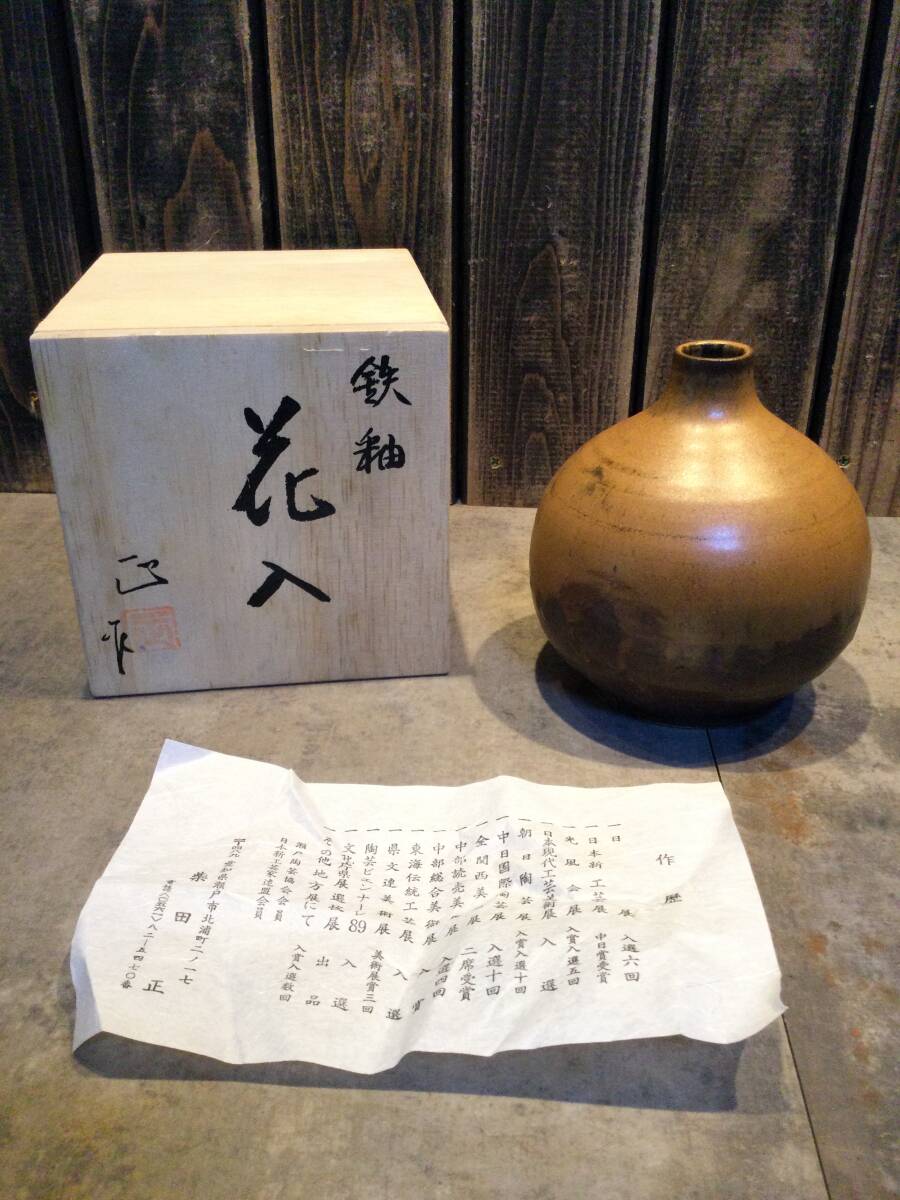 鉄釉
花入
正作
作歴
一日展 入選六回
一日本新工芸展 中日賞受賞
一光風会展 入賞入選五回
一日本現代工芸美術展 入選
一朝日陶芸展 入賞入選十回
一中日国際陶芸展 入選十回
一全関西美展 二席受賞
一中部読売美展 入選四回
一中部総合美術展 入賞
一東海伝統工芸展 入選
一県文連美術展 美術展賞三回
一陶芸ビエンナーレ89 入選
一文化庁県展選抜展 出品
一その他地方展にて 入賞入選数回
瀬戸陶芸協会会員
日本新工芸家連盟会員
愛知県瀬戸市北浦町二ノ一七
柴田正
電話(〇五六一)八二ー五四七〇番